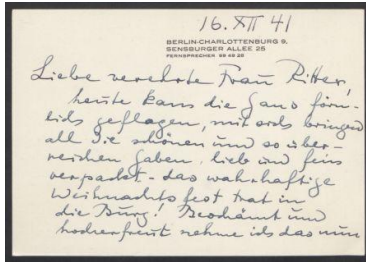 16. XII 41
BERLIN-CHARLOTTENBURG 9,
SENSBURGER ALLEE 25
FERNSPRECHER 99 48 26
Liebe verehrte Frau Ritter,
heute kam die Gans förm-
lich geflogen, mit sich bringend
all die schönen und so über-
reichen Gaben, lieb und fein
verpackt - das wahrhaftige
Weihnachtsfest trat in
die Burg! Beschämt und
hocherfreut nehme ich das nun